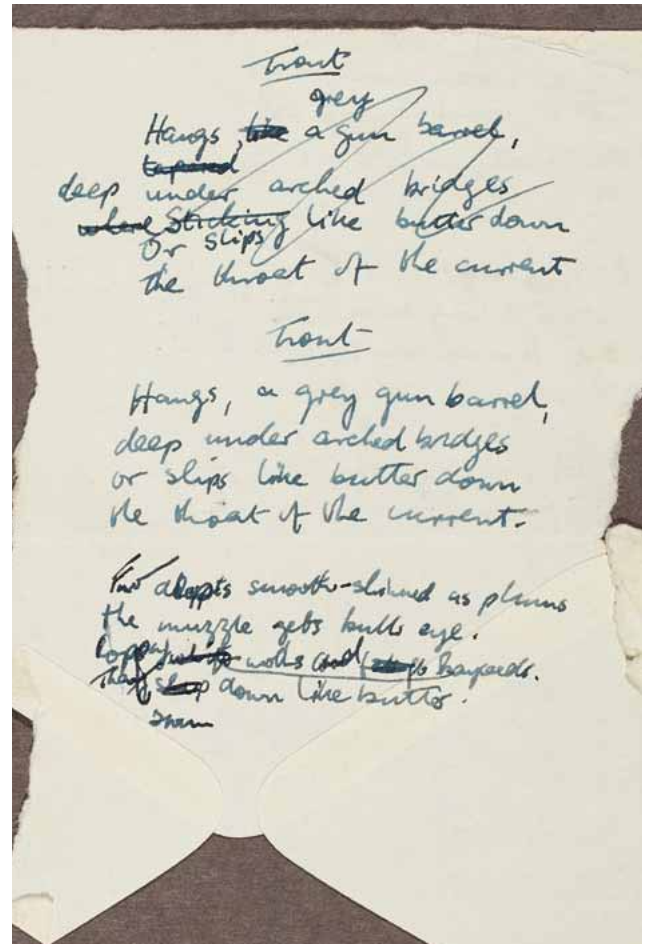 Trout
grey
Hangs, like a gun barrel,
tapered
deep under arched bridges
where Sticking like butter down
Or slips
the throat of the current
Trout
Hangs, a grey gun barrel,
deep under arched bridges
or slips like butter down
the throat of the current.
smooth-skinned as plums
the muzzle gets bulls eye.
down like butter.